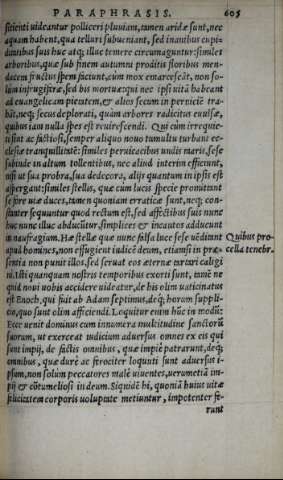 PARAPHRASIS. 605
sitienti uideantur polliceri pluuiam, tamen aridæ sunt, nec
aquam habent, qua telluri subueniant, sed inanibus cupi
ditatibus suis huc atq; illuc temere circumaguntur: similes
arboribus, quæ sub finem autumni proditis floribus men-
dacem fructus spem faciunt, cùm mox emarcescāt, non so-
lùm infrugiferæ, sed bis mortuæ: qui nec ipsi uitā habeant
ad euangelicam pietatem, & alios secum in perniciē tra-
hāt, neq; secus deplorati, quàm arbores radicitus euulsæ,
quibus iam nulla spes est reuirescendi. Qui cùm irrequie-
ti sint ac factiosi, semper aliquo nouo tumultu turbant ec-
clesiæ tranquillitatē: similes peruicacibus undis maris, sese
subinde in altum tollentibus, nec aliud interim efficiunt,
nisi ut sua probra, sua dedecora, alijs quantum in ipsis est
aspergant: similes stellis, quæ cùm lucis specie promittant
se fore uitæ duces, tamen quoniam erraticæ sunt, neq; con-
stanter sequuntur quod rectum est, sed affectibus suis nunc
huc nunc illuc abducuntur, simplices & incautos adducunt
in naufragium. Hæ stellæ quæ nunc falsa luce sese uēditant
apud homines, non effugient iudiciū deum, etiamsi in præ-
sentia non punit illos, sed seruat eos æternæ tartari caligi
ni. Isti quanquam nostris temporibus exorti sunt, tamē ne
quid noui uobis accidere uideatur, de his olim uaticinatus
est Enoch, qui fuit ab Adam septimus, deq; horum suppli-
cio, quo sunt olim afficiendi. Loquitur enim hūc in modū:
Ecce uenit dominus cum innumera multitudine sanctorū
suorum, ut exerceat iudicium aduersus omnes ex eis qui
sunt impij, de factis omnibus, quæ impiè patrarunt, deq;
omnibus, quæ durè ac ferociter loquuti sunt aduersus i-
psum, non solùm peccatores malè uiuentes, uerumetiā im-
pij & cōtumeliosi in deum. Siquidē hi, quoniā huius uitæ
felicitatem corporis uoluptate metiuntur, impotenter fe-
runt
Quibus pro-
cella tenebr.